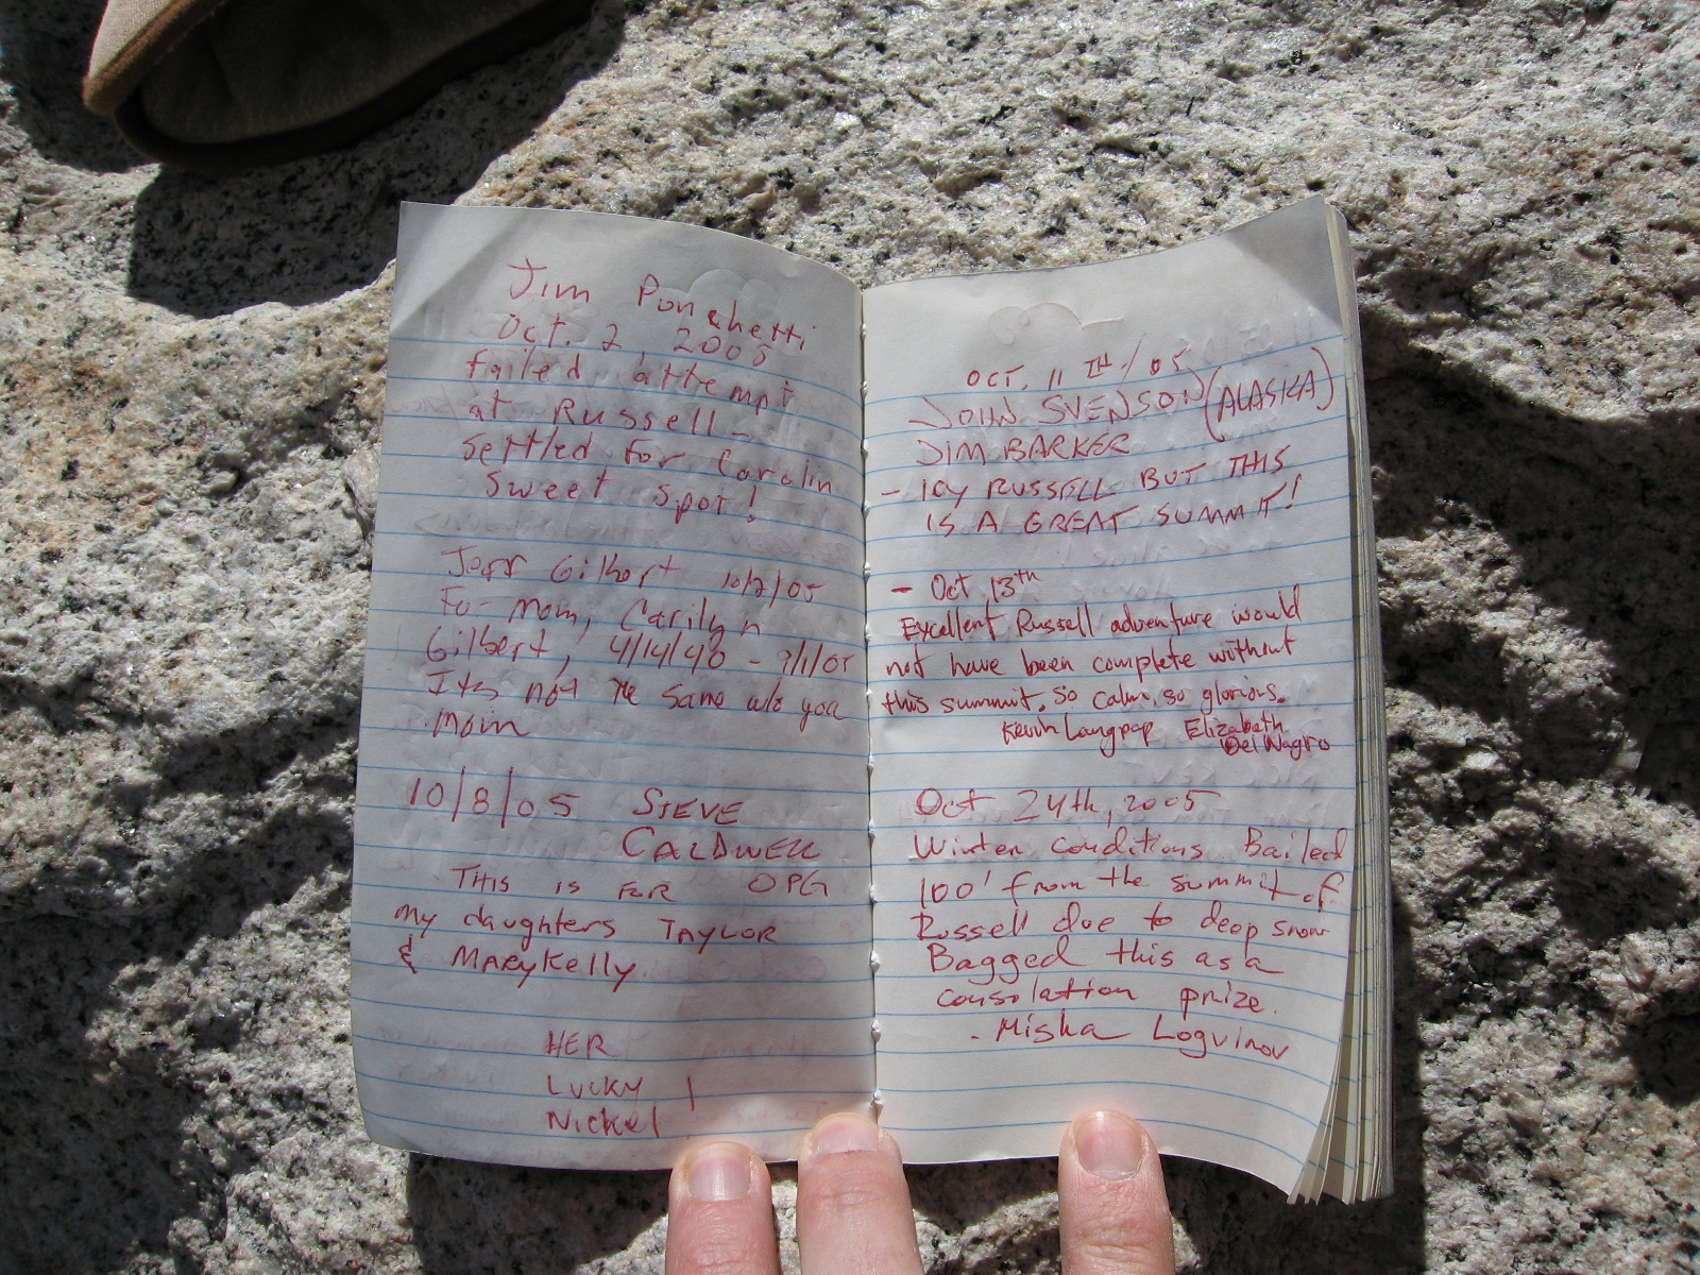 Jim Ponchetti
Oct. 2, 2005
failed attempt
at Russell -
settled for Carolin
Sweet spot!
Gilbert 10/2/05
For mom, Carilyn
Gilbert, 4/14/40 - 9/1/05
Its not the same w/o you
mom
10/8/05 STEVE
CALDWELL
THIS IS FOR OPG
my daughters TAYLOR
& MARYKELLY
HER
LUCKY
Nickel!
OCT. 11TH/05
JOHN SVENSON (ALASKA)
JIM BARKER
- ICY RUSSELL BUT THIS
IS A GREAT SUMMIT!
- Oct 13th
Excellent Russell adventure would
not have been complete without
this summit. So calm, so glorious.
Kevin Langpap Elizabeth
Del Nagro
Oct 24th, 2005
Winter conditions Bailed
100' from the summit of
Russell due to deep snow
Bagged this as a
consolation prize.
- Misha Logvinov